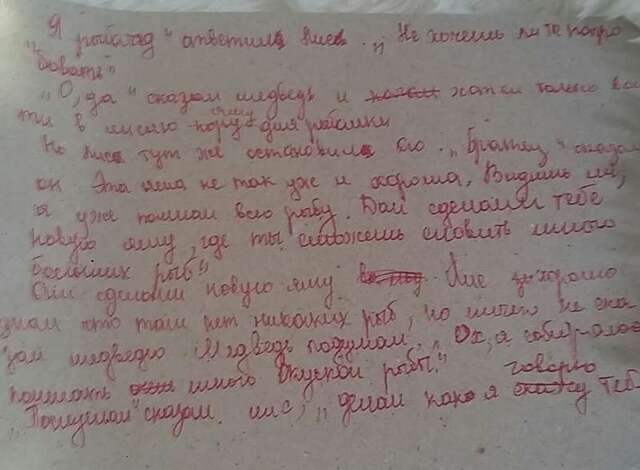 Я рыбалад" ответила лиса. „Не хочешь ли ты попро
бовать"
„О, да" сказал медведь и хотел только вой
ти в лисью яму для рыбалки
Но лиса тут же остановила его. „Братец" сказал
он Эта яма не так уж и хороша. Видишь ли,
я уже поймал всю рыбу. Дай сделаем тебе
новую яму, где ты сможешь словить много
больших рыб"
Они сделали новую яму Лис хорошо
знал что там нет никаких рыб, но ничего не ска
зал медведю Медведь подумал, „Ох, я собиралась
поймать много вкусной рыбы."
„Послушай" сказал лис, „делай как я говорю тебе